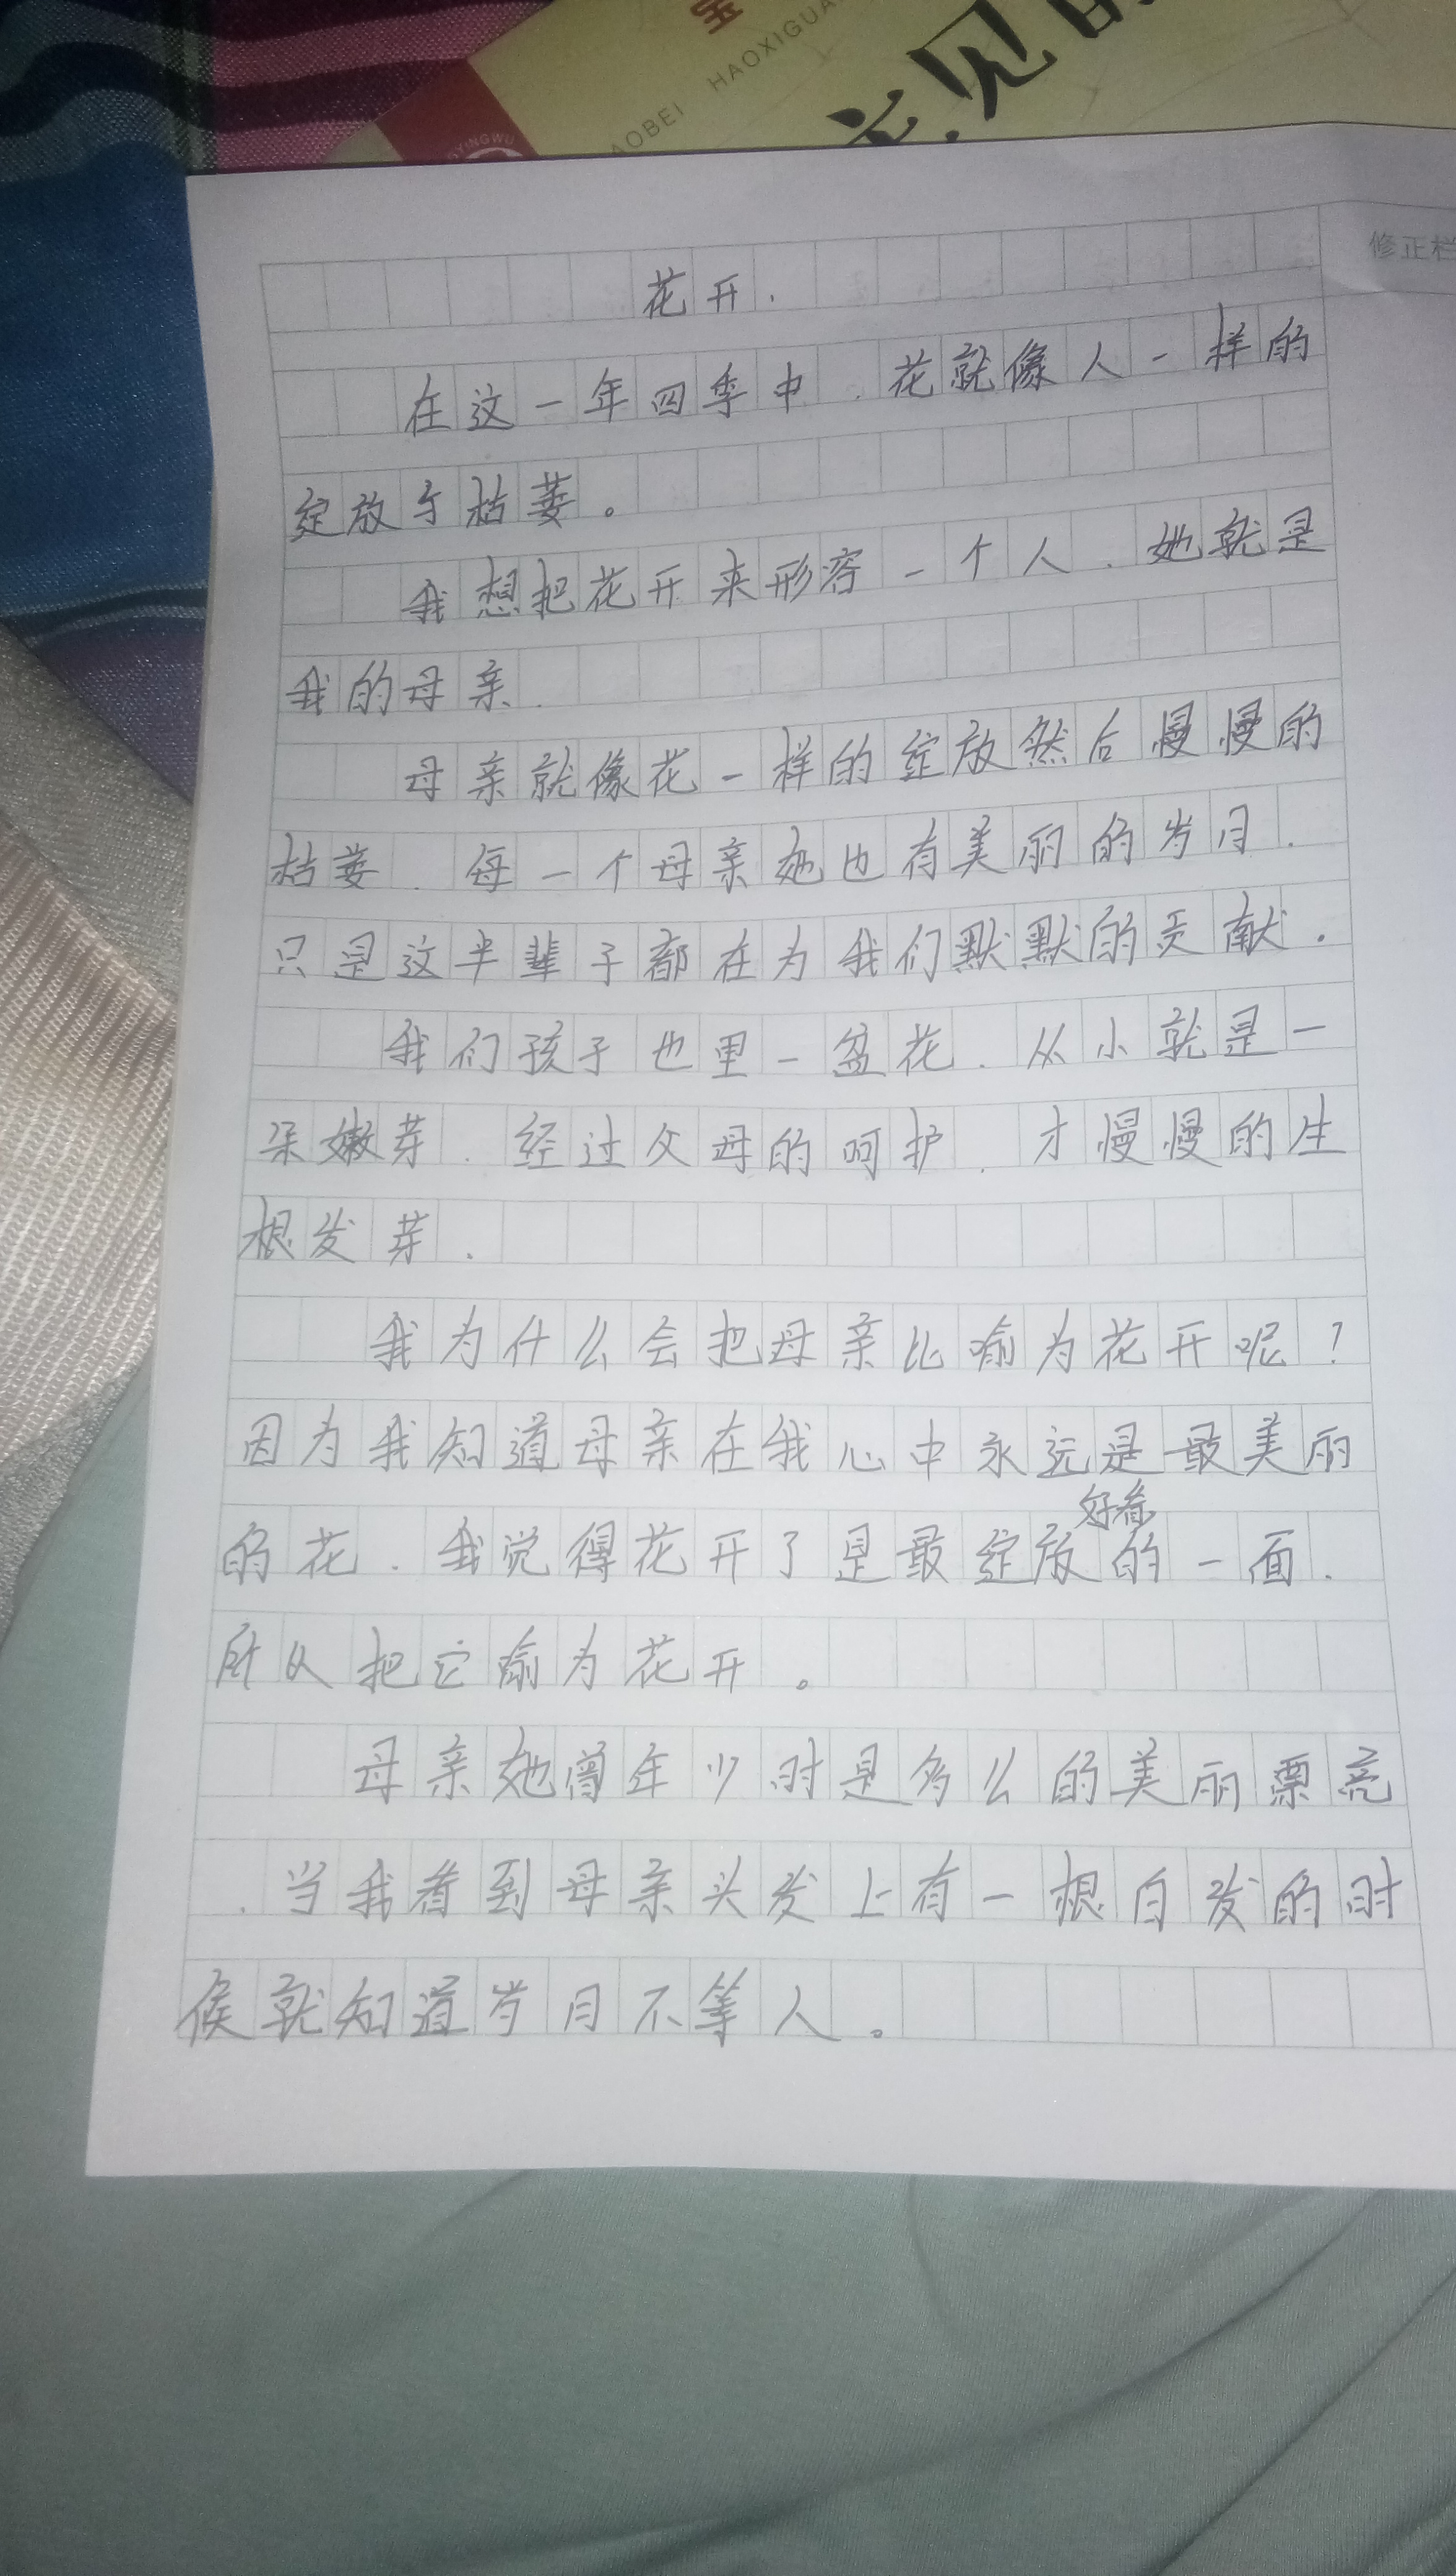 宝
HAOXIGUA
AOBEI
YINGWU
见的
修正栏
花开.
在这一年四季中.花就像人一样的
绽放与枯萎。
我想把花开来形容一个人.她就是
我的母亲.
母亲就像花一样的绽放然后慢慢的
枯萎.每一个母亲她也有美丽的岁月.
只是这半辈子都在为我们默默的贡献.
我们孩子也里一盆花.从小就是一
朵嫩芽.经过父母的呵护.才慢慢的生
根发芽.
我为什么会把母亲比喻为花开呢?
因为我知道母亲在我心中永远是最美丽
好看
的花.我觉得花开了是最绽放的一面.
所以把它喻为花开。
母亲她曾年少时是多么的美丽票亮
.当我看到母亲头发上有一根白发的时
候就知道岁月不等人。